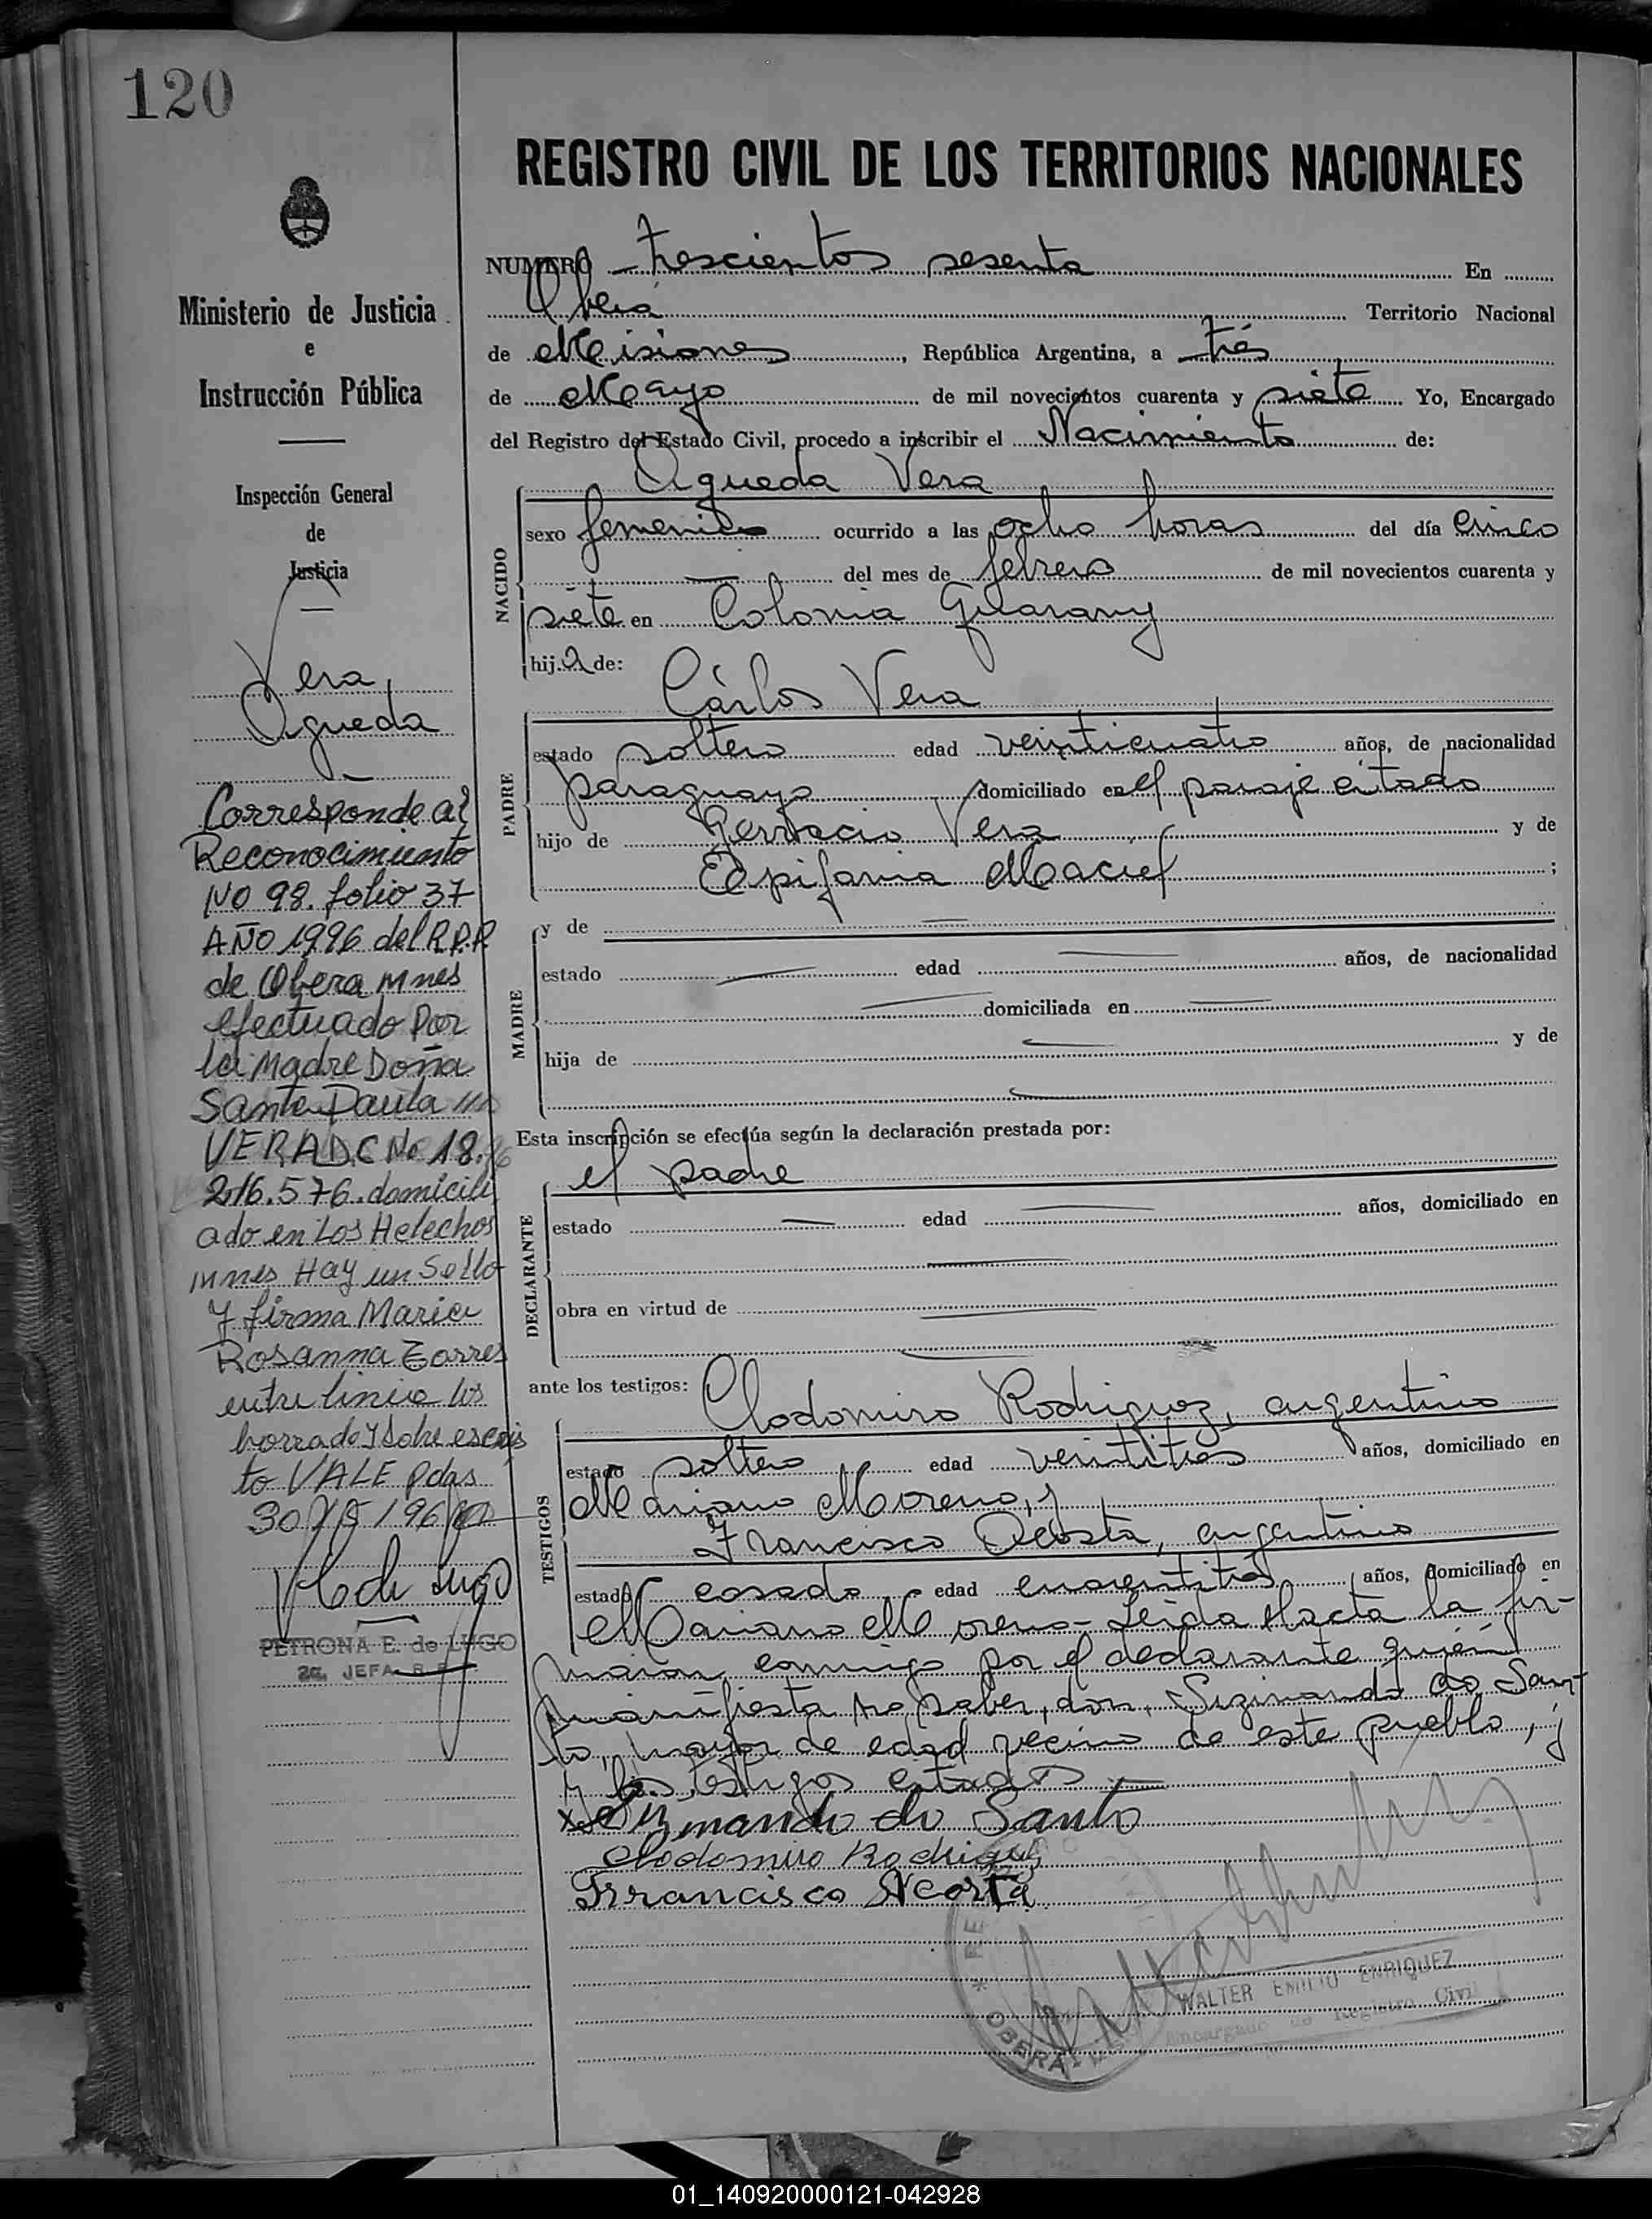 120
REGISTRO CIVIL DE LOS TERRITORIOS NACIONALES
NUMERO trescientos sesenta En
Oberá Territorio Nacional
de Misiones, República Argentina, a trés
de Mayo de mil novecientos cuarenta y siete Yo, Encargado
del Registro del Estado Civil, procedo a inscribir el Nacimiento de:
Agueda Vera
NACIDO
sexo femenino ocurrido a las ocho horas del día cinco
— del mes de febrero de mil novecientos cuarenta y
siete en Colonia Guarany
hija de:
Cárlos Vera
PADRE
estado soltero edad veinticuatro años, de nacionalidad
paraguayo domiciliado en el paraje citado
hijo de Vera y de
Epifania Maciel ;
MADRE
y de
estado — edad — años, de nacionalidad
— domiciliada en —
hija de — y de
—
Esta inscripción se efectúa según la declaración prestada por:
el padre
DECLARANTE
estado — edad — años, domiciliado en
—
obra en virtud de —
—
ante los testigos:
Clodomiro Rodriguez, argentino
TESTIGOS
estado soltero edad veintitres años, domiciliado en
Mariano Moreno, y
Francisco Acosta, argentino
estado casado edad cuarentitrés años, domiciliado en
Mariano Moreno- Leida el acta la fir-
maron conmigo por el declarante quién
manifiesta no saber, don, Sizinando do San-
to, mayor de edad vecino de este pueblo, y
los testigos citados
do Santo
Clodomiro Rodriguez
Francisco Acosta
OBERA
WALTER EMILIO ENRIQUEZ
Encargado de Registro Civil
Ministerio de Justicia
e
Instrucción Pública
Inspección General
de
Justicia
Vera,
Agueda
Corresponde al
Reconocimiento
No 98. folio 37
AÑO 1996 del R.P.P
de Obera Mnes
efectuado Por
la Madre Doña
Santa Paula
VERA D.C No 18.
216.576. domicili
ado en Los Helechos
mnes Hay un Sello
y firma Maria
Rosanna Torres
entre linea los
borrado y sobre escrip
to VALE Pdas
PETRONA E. de LUGO
2a. JEFA
01_140920000121-042928